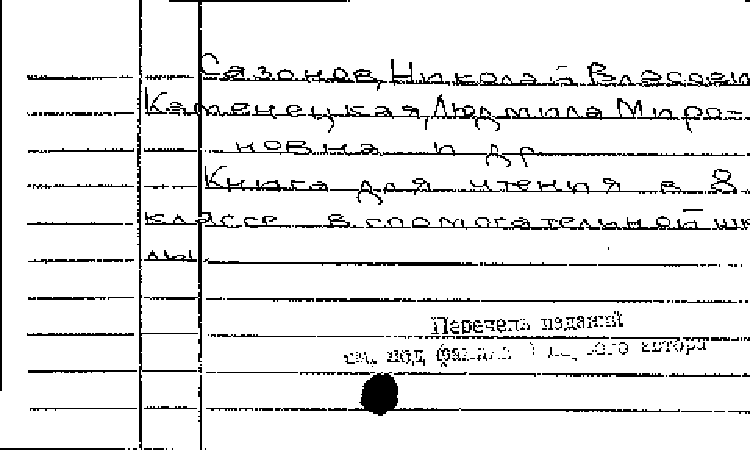 Сазонов, Николай Власов
Каменецкая, Людмила Миро-
новна и др
Книга для чтения в 8
классе вспомогательной шк
лы
Перечень изданий
см. под автора